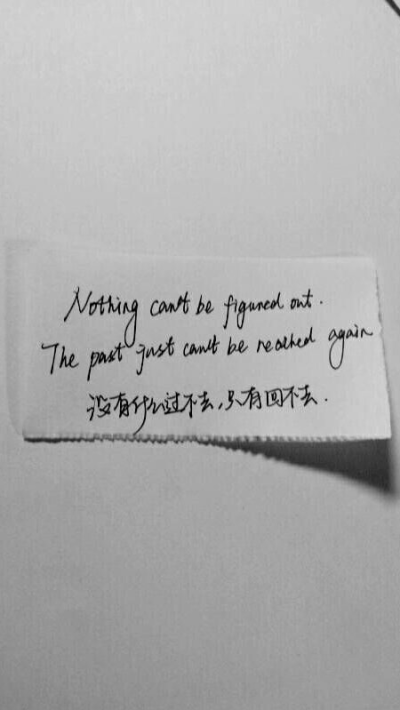 Nothing can't be figured out.
The past just can't be reached again
没有什么过不去,只有回不去.